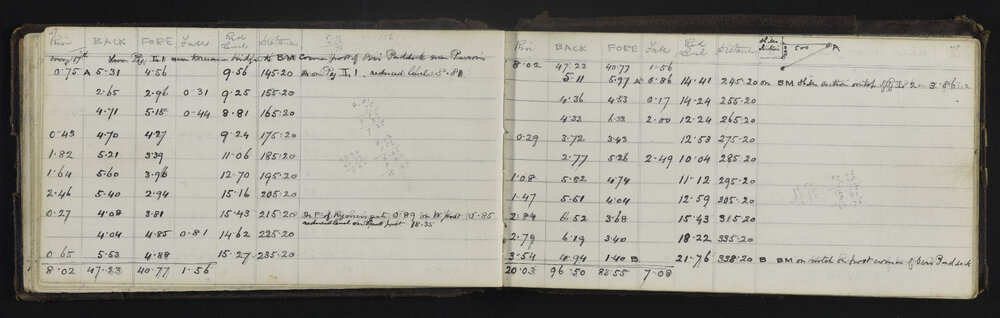 Rise BACK FORE Fall Red Level Distance
May 17th from Peg II.1 near Kereama bridge to BM Corner post of Paddock near
0.75 A 5.31 4.56 9.56 145.20 A on Peg II,1, reduced level = 8.81
2.65 2.96 0.31 9.25 155.20
4.71 5.15 0.44 8.81 165.20
0.43 4.70 4.27 9.24 175.20
1.82 5.21 3.39 11.06 185.20
1.64 5.60 3.96 12.70 195.20
2.46 5.40 2.94 15.16 205.20
0.27 4.08 3.81 15.43 215.20 gate 0.89 on W. post
reduced level
4.04 4.85 0.81 14.62 225.20
0.65 5.53 4.88 15.27 235.20
8.02 47.23 40.77 1.56
Rise BACK FORE Fall Red Level Distance 500 A 45
8.02 47.23 40.77 1.56
5.11 5.97 A 0.86 14.41 245.20 on BM
4.36 4.53 0.17 14.24 255.20
4.33 6.33 2.00 12.24 265.20
0.29 3.72 3.43 12.53 275.20
2.77 5.26 2.49 10.04 285.20
1.08 5.82 4.74 11.12 295.20
1.47 5.51 4.04 12.59 305.20
2.84 6.52 3.68 15.43 315.20
2.79 6.19 3.40 18.22 335.20
3.54 4.94 1.40 B 21.76 338.20 B BM on post corner of Paddock
20.03 96.50 83.55 7.08